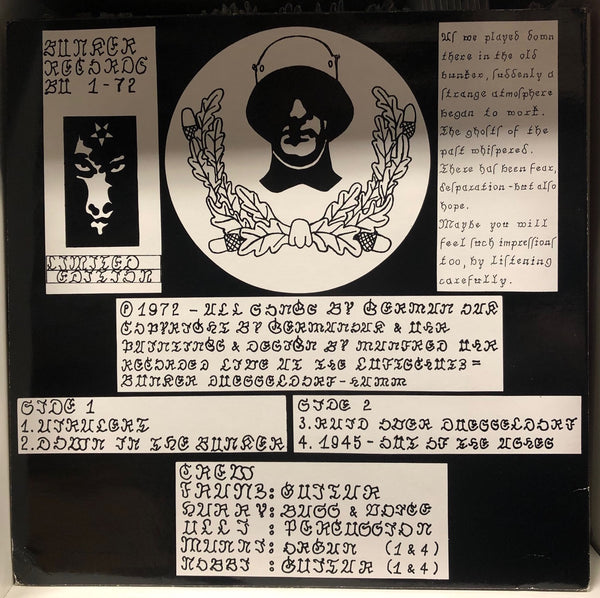 BUNKER
RECORDS
BU 1-72
LIMITED
EDITION
As we played down
there in the old
bunker, suddenly a
strange atmosphere
began to work.
The ghosts of the
past whispered.
There has been fear,
desparation - but also
hope.
Maybe you will
feel such impressions
too, by listening
carefully.
℗1972 - ALL SONGS BY GERMAN OAK
COPYRIGHT BY GERMANOAK & UHR
PAINTINGS & DESIGN BY MANFRED UHR
RECORDED LIVE AT THE LUFTSCHUTZ=
BUNKER DUESSELDORF-HAMM
SIDE 1
1. AIRALERT
2. DOWN IN THE BUNKER
SIDE 2
3. RAID OVER DUESSELDORF
4. 1945 - OUT OF THE ASHES
CREW
FRANZ: GUITAR
HARRY: BASS & VOICE
ULLI : PERCUSSION
MANNI: ORGAN (1 & 4)
NOBBI : GUITAR (1 & 4)